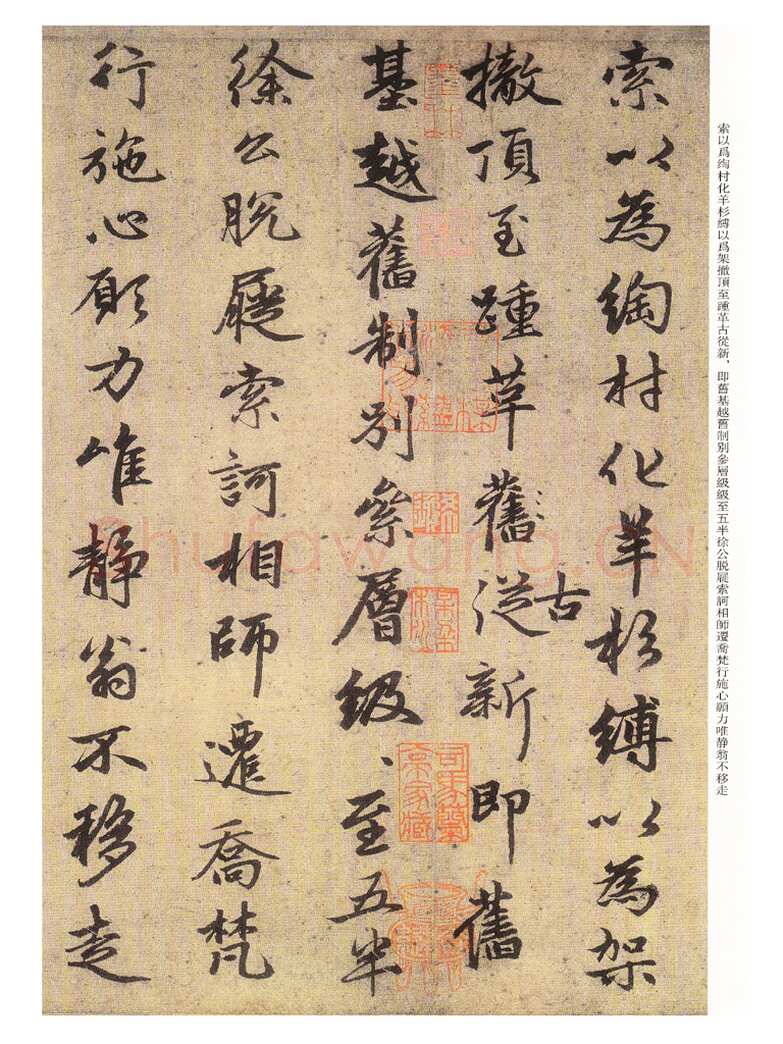 索以爲綯村化羊杉縛以爲架撤頂至踵革古從新、即舊基越舊制別參層級級至五半徐公脱屣索訶相師遷喬梵行施心願力唯静翁不移走
索以為綯村化羊杉縛以為架
撤頂至踵革舊從新即舊
古
基越舊制別叅層級、至五半
徐公脫屣索訶相師遷喬梵
行施心願力唯靜翁不移走
Shufawang.CN